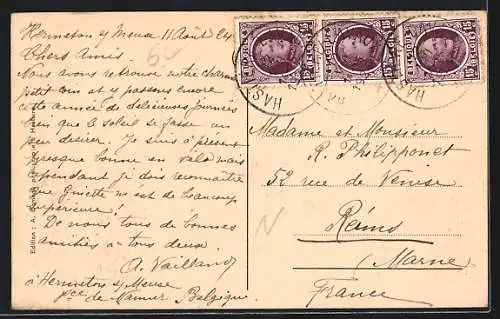 Hermeton s/ Meuse 11 Août 24
Chers Amis.
Nous avons retrouvé notre charmant
petit coin et y passons encore
cette année de délicieuses journées
bien que le soleil se fasse un
peu désirer. Je suis à présent
presque bonne en vélo mais
cependant je dois reconnaître
que Guiette m'est de beaucoup
supérieure!
De nous tous de bonnes
amitiés à tous deux.
A. Vailland
à Hermeton s/ Meuse
Pce de Namur Belgique
Edition : A.
Madame et Monsieur
R. Philipponet
52 rue de Venise
Reims
(Marne)
France